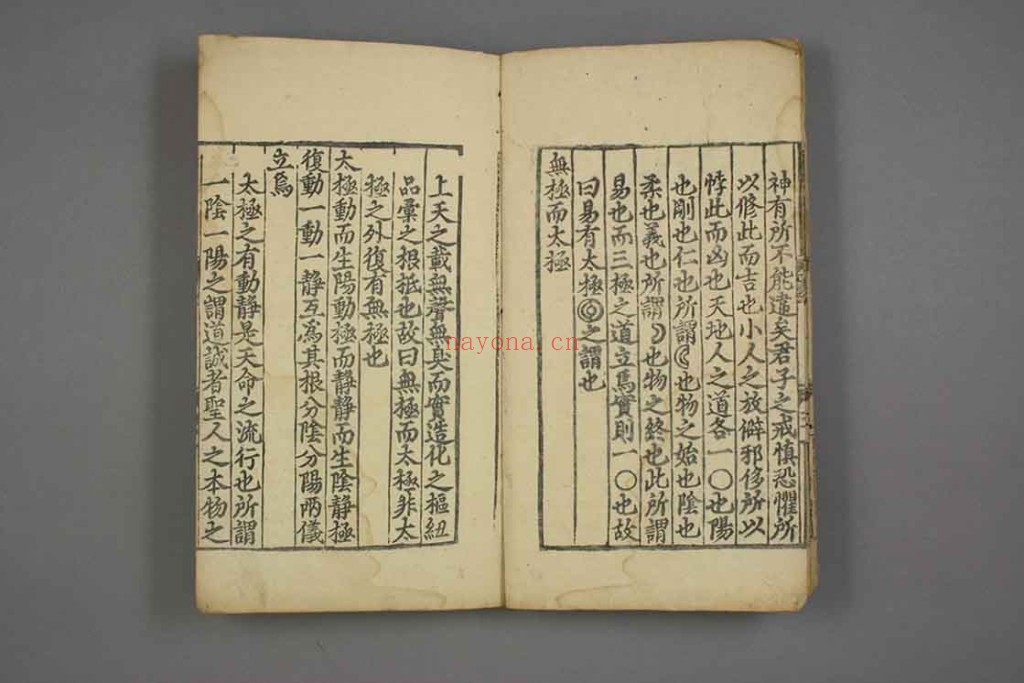 神有所不能違矣君子之戒慎恐懼所
以修此而吉也小人之放僻邪侈所以
悖此而凶也天地人之道各一〇也陽
也剛也仁也所謂☾也物之始也陰也
柔也義也所謂☽也物之終也此所謂
易也而三極之道立焉實則一〇也故
曰易有太極◎之謂也
無極而太極
上天之載無聲無臭而實造化之樞紐
品彙之根柢也故曰無極而太極非太
極之外復有無極也
太極動而生陽動極而静静而生陰静極
復動一動一静互爲其根分陰分陽兩儀
立焉
太極之有動静是天命之流行也所謂
一陰一陽之謂道誠者聖人之本物之
nayona.cn